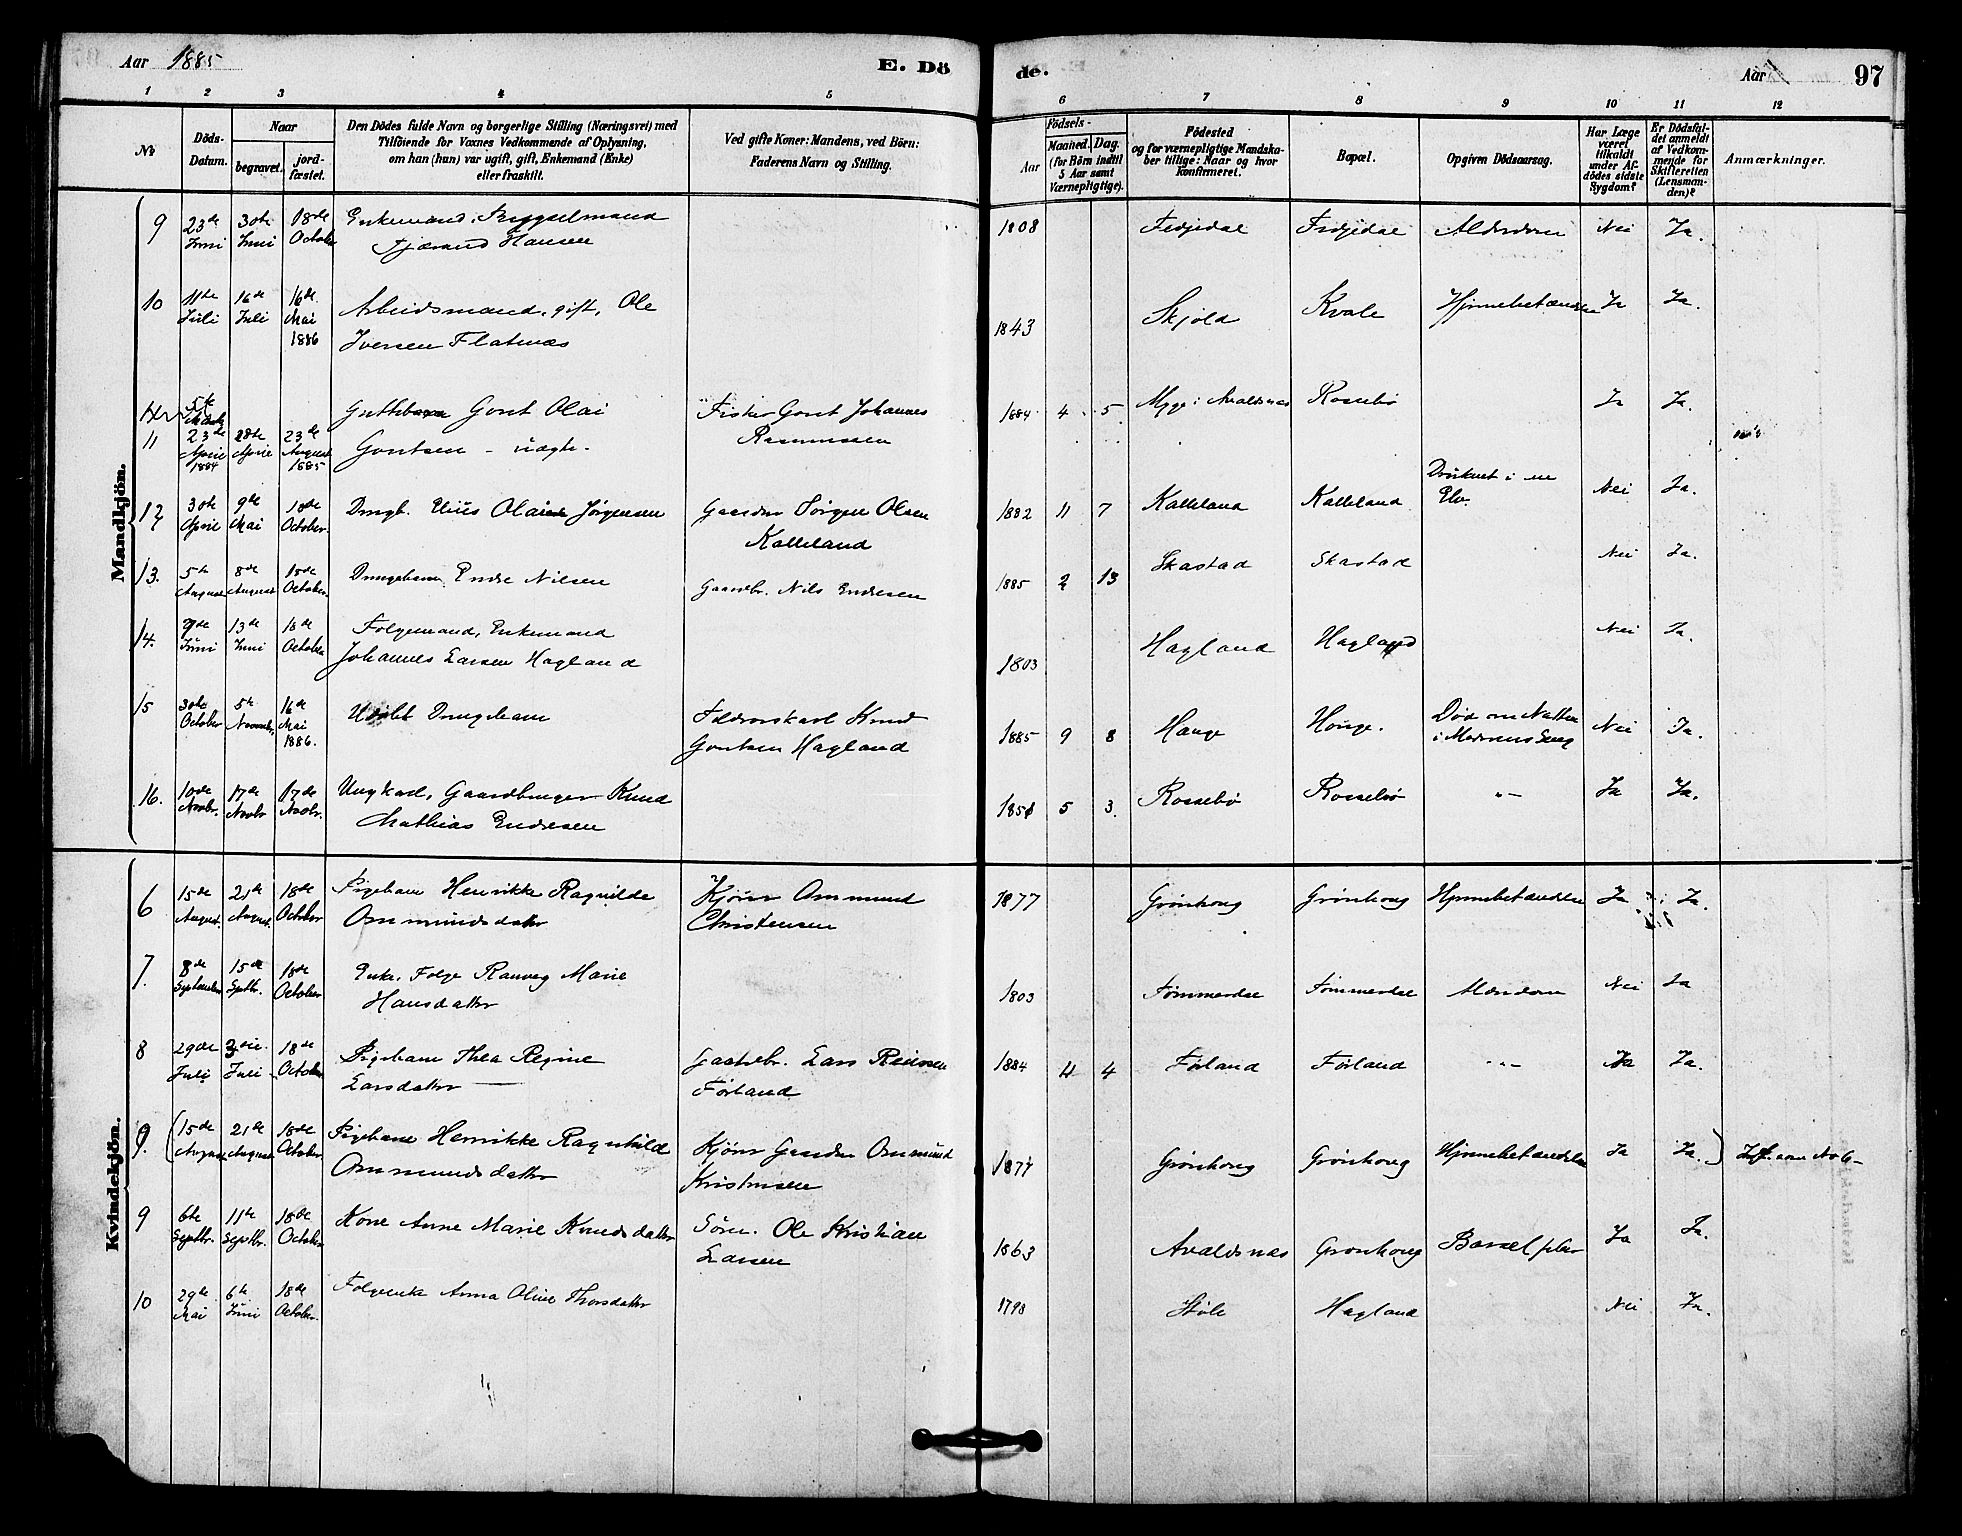 Aar 1885
E. Dö
de.
Aar
97
1 2 3 4 5 6 7 8 9 10 11 12
№
Döds-Datum.
Naar
begravet.
jord-fæstet.
Den Dödes fulde Navn og borgerlige Stilling (Næringsvei) med
Tilföiende for Voxnes Vedkommende af Oplysning,
om han (hun) var ugift, gift, Enkemand (Enke)
eller fraskilt.
Ved gifte Koner: Mandens, ved Börn:
Faderens Navn og Stilling.
Födsels-
Aar
Maaned. Dag.
(for Börn indtil
5 Aar samt
Værnepligtige).
Födested
og for værnepligtige Mandska-
ber tillige: Naar og hvor
konfirmeret.
Bopæl.
Opgiven Dödsaarsag.
Har Læge
været
tilkaldt
under Af-
dödes sidste
Sygdom?
Er Dödsfal-
det anmeldt
af Vedkom-
mende for
Skifteretten
(Lensman-
den)?
Anmærkninger.
Mandkjön.
9 23de Juni 30te Juni 18de October Enkemand. 1808 Aldersdom Nei Ja.
Hansen
10 11te Juli 16de Juli 16de Mai 1886 Arbeidsmand, gift, Ole 1843 Skjold Kvale Hjernebetændelse Ja Ja.
Iversen Flatnæs
11 23de April 1884 28de April 23de August 1885 Guttebarn Gont Olai Fisker Gont Johannes 1884 4 5 Myge i Avaldsnæs Rossebø Ja Ja.
Gontsen - uægte. Rasmussen
12 30te April 9de Mai 18de October. Drengb. Elius Olai Jørgensen Gaardbr Jørgen Olsen 1882 11 7 Kalleland Kalleland Druknet i en Elv. Nei Ja.
Kalleland
13. 5te August 8de August 18de October. Drengebarn Endre Nilsen Gaardbr. Nils Endresen 1885 2 13 Skastad Skastad Nei Ja.
14. 7de Juni 13de Juni 18de October Folgemand, Enkemand 1803 Hagland Hagland Nei Ja.
Johannes Larsen Hagland
15 30te October 5te November 16de Mai 1886. Udøbt Drengebarn Knud 1885 9 8 Hauge Hauge. Død om Natten i Moderens Seng Nei Ja.
Gontsen Hagland
16. 10de Novbr. 17de Novbr 17de Novbr. Ungkarl, Gaardbruger Knud 1851 5 3. Rossebø Rossebø "- Ja Ja.
Mathias Endresen
Kvindekjön.
6 15de August. 21de August. 18de October Pigebarn Henrikke Ragnilde Kjører Ommund 1877 Grønhoug Grønhoug Hjernebetændelse Ja Ja.
Ommundsdatter Christensen
7. 8de September 15de Septbr. 18de October Enke. Folge Ranveg Marie 1803 Tømmerdal Tømmerdal Alderdom Nei Ja
Hansdatter
8 29de Juli Juli 18de October Pigebarn Thea Regine Gaardbr. Lars Reiersen 1884 4 4 Førland Førland "- Ja Ja.
Larsdatter Førland
9. 15de August 21de August 18de October Pigebarn Henrikke Ragnhild Kjører Gaardbr Ommund 1877 Grønhoug Grønhoug Hjernebetændelse Ja Ja. som No 6-
Ommundsdatter Kristensen
9 6te Septbr. 11te Septbr. 18de October Kone Anne Marie Knudsdatter Ole Kristian 1863 Avaldsnæs Grønhoug Barselfeber Ja Ja.
Larsen
10 29de Mai 6te Juni 18de October. Folgeenke Anna Oline Thorsdatter 1798 Støle Hagland Nei Ja.